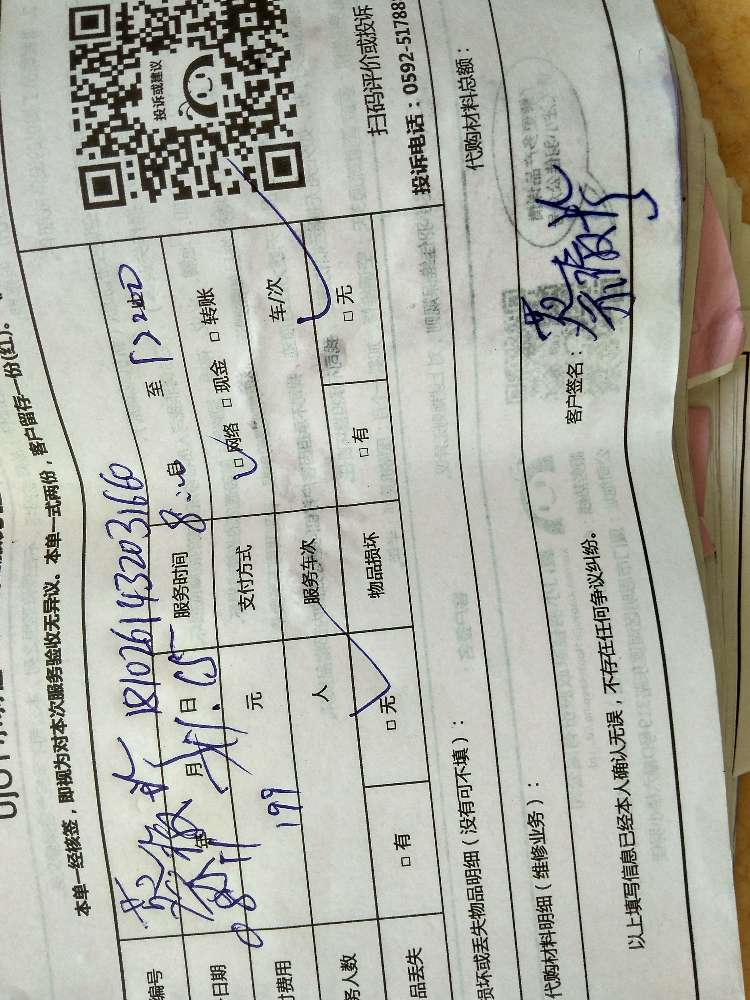 本单一经核签，即视为对本次服务验收无异议。本单一式两份，客户留存一份(红)。
投诉或建议
扫码评价或投诉
投诉电话：0592-51788
编号 18102614320031660
日期 年 月 日 服务时间 8:00 至 12:00
费用 199 元 支付方式 □网络 □现金 □转账
务人数 人 服务车次 车/次
品丢失 □有 □无 物品损坏 □有 □无
损坏或丢失物品明细（没有可不填）：
代购材料明细（维修业务）： 代购材料总额：
以上填写信息已经本人确认无误，不存在任何争议纠纷。
客户签名：